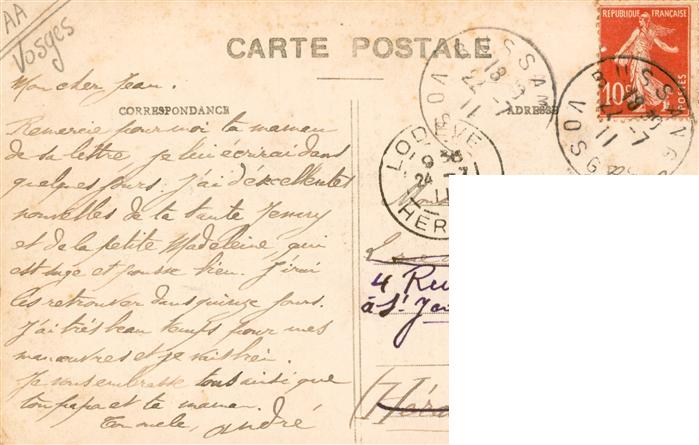 AA
Vosges
CARTE POSTALE
CORRESPONDANCE
ADRESSE
RÉPUBLIQUE FRANÇAISE
10c
POSTES
BUSSANG
18 30
22 -7
11
VOSGES
BUSSANG
18 30
22 -7
11
VOSGES
LODÈVE
9 35
24 -7
11
HER
Mon cher Jean.
Remercie pour moi ta maman
de sa lettre, je lui écrirai dans
quelques jours. J'ai d'excellentes
nouvelles de ta tante Jenny
et de la petite Madeleine, qui
est sage et pousse bien. J'irai
les retrouver dans quinze jours.
J'ai très beau temps pour mes
manœuvres et je vais bien.
Je vous embrasse tous ainsi que
ton papa et ta maman.
Ton oncle, André
4 Rue
à St. Jai
(Héra